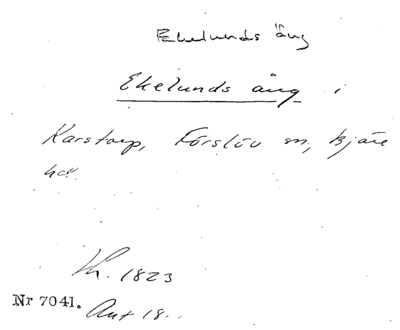 Ekelunds äng
Ekelunds äng i
Karstorp, Förslöv sn, Bjäre
hd.
Kh. 1823
Nr 7041. Akt 18